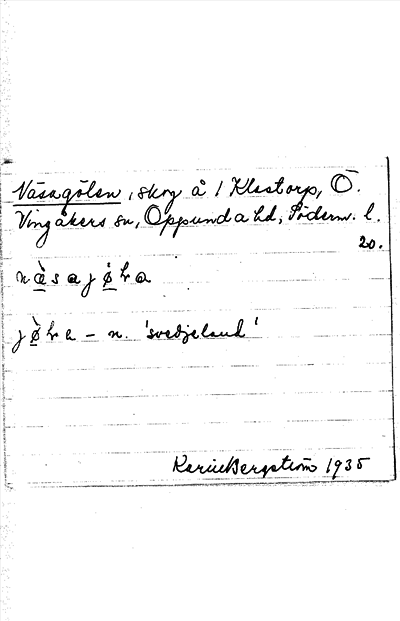 Näsagölen, skog å 1 Klastorp, Ö.
Vingåkers sn, Oppunda hd, Söderm. l.
20.
næ̀sajø̀ƚa
jø̀ƚa – n. 'svedjeland'
Karin Bergström 1935